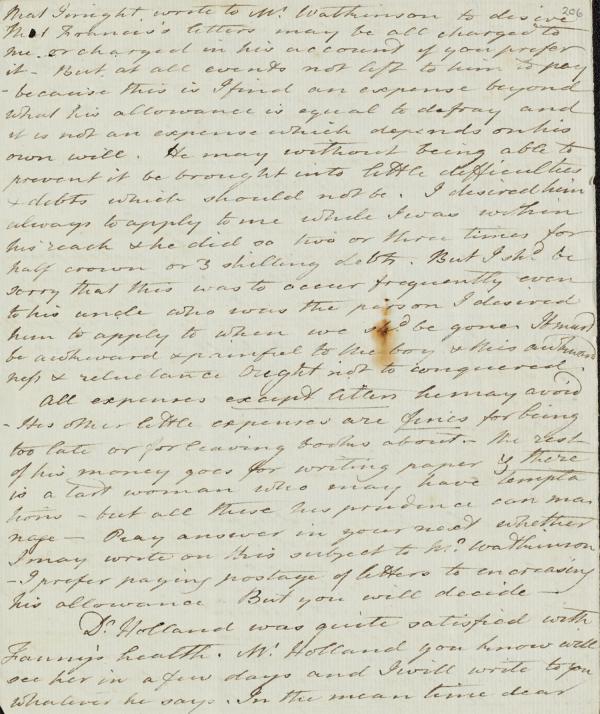 206
that I might write to Mr. Watkinson to desire
that Francis's letters may be all charged to
me or charged in his account if you prefer
it - But at all events not left to him to pay
- because this is I find an expense beyond
what his allowance is equal to defray and
it is not an expense which depends on his
own will. He may without being able to
prevent it be brought into little difficulties
& debts which should not be. I desired him
always to apply to me while I was within
his reach & he did so two or three times for
half crown or 3 shilling debts. But I shd. be
sorry that this was to occur frequently even
to his uncle who was the person I desired
him to apply to when we shd be gone. It must
be awkward & painful to the boy & this awkward
ness & reluctance ought not to conquered.
All expenses except letters he may avoid
- His other little expenses are fines for being
too late or for leaving books about - the rest
of his money goes for writing paper & there
is a tart woman who may have tempta
tions - but all these his prudence can ma
nage - Pray answer in your next whether
I may write on this subject to Mr. Watkinson
- I prefer paying postage of letters to encreasing
his allowance But you will decide -
Dr. Holland was quite satisfied with
Fanny's health. Mr. Holland you know will
see her in a few days and I will write to you
whatever he says. In the mean time dear